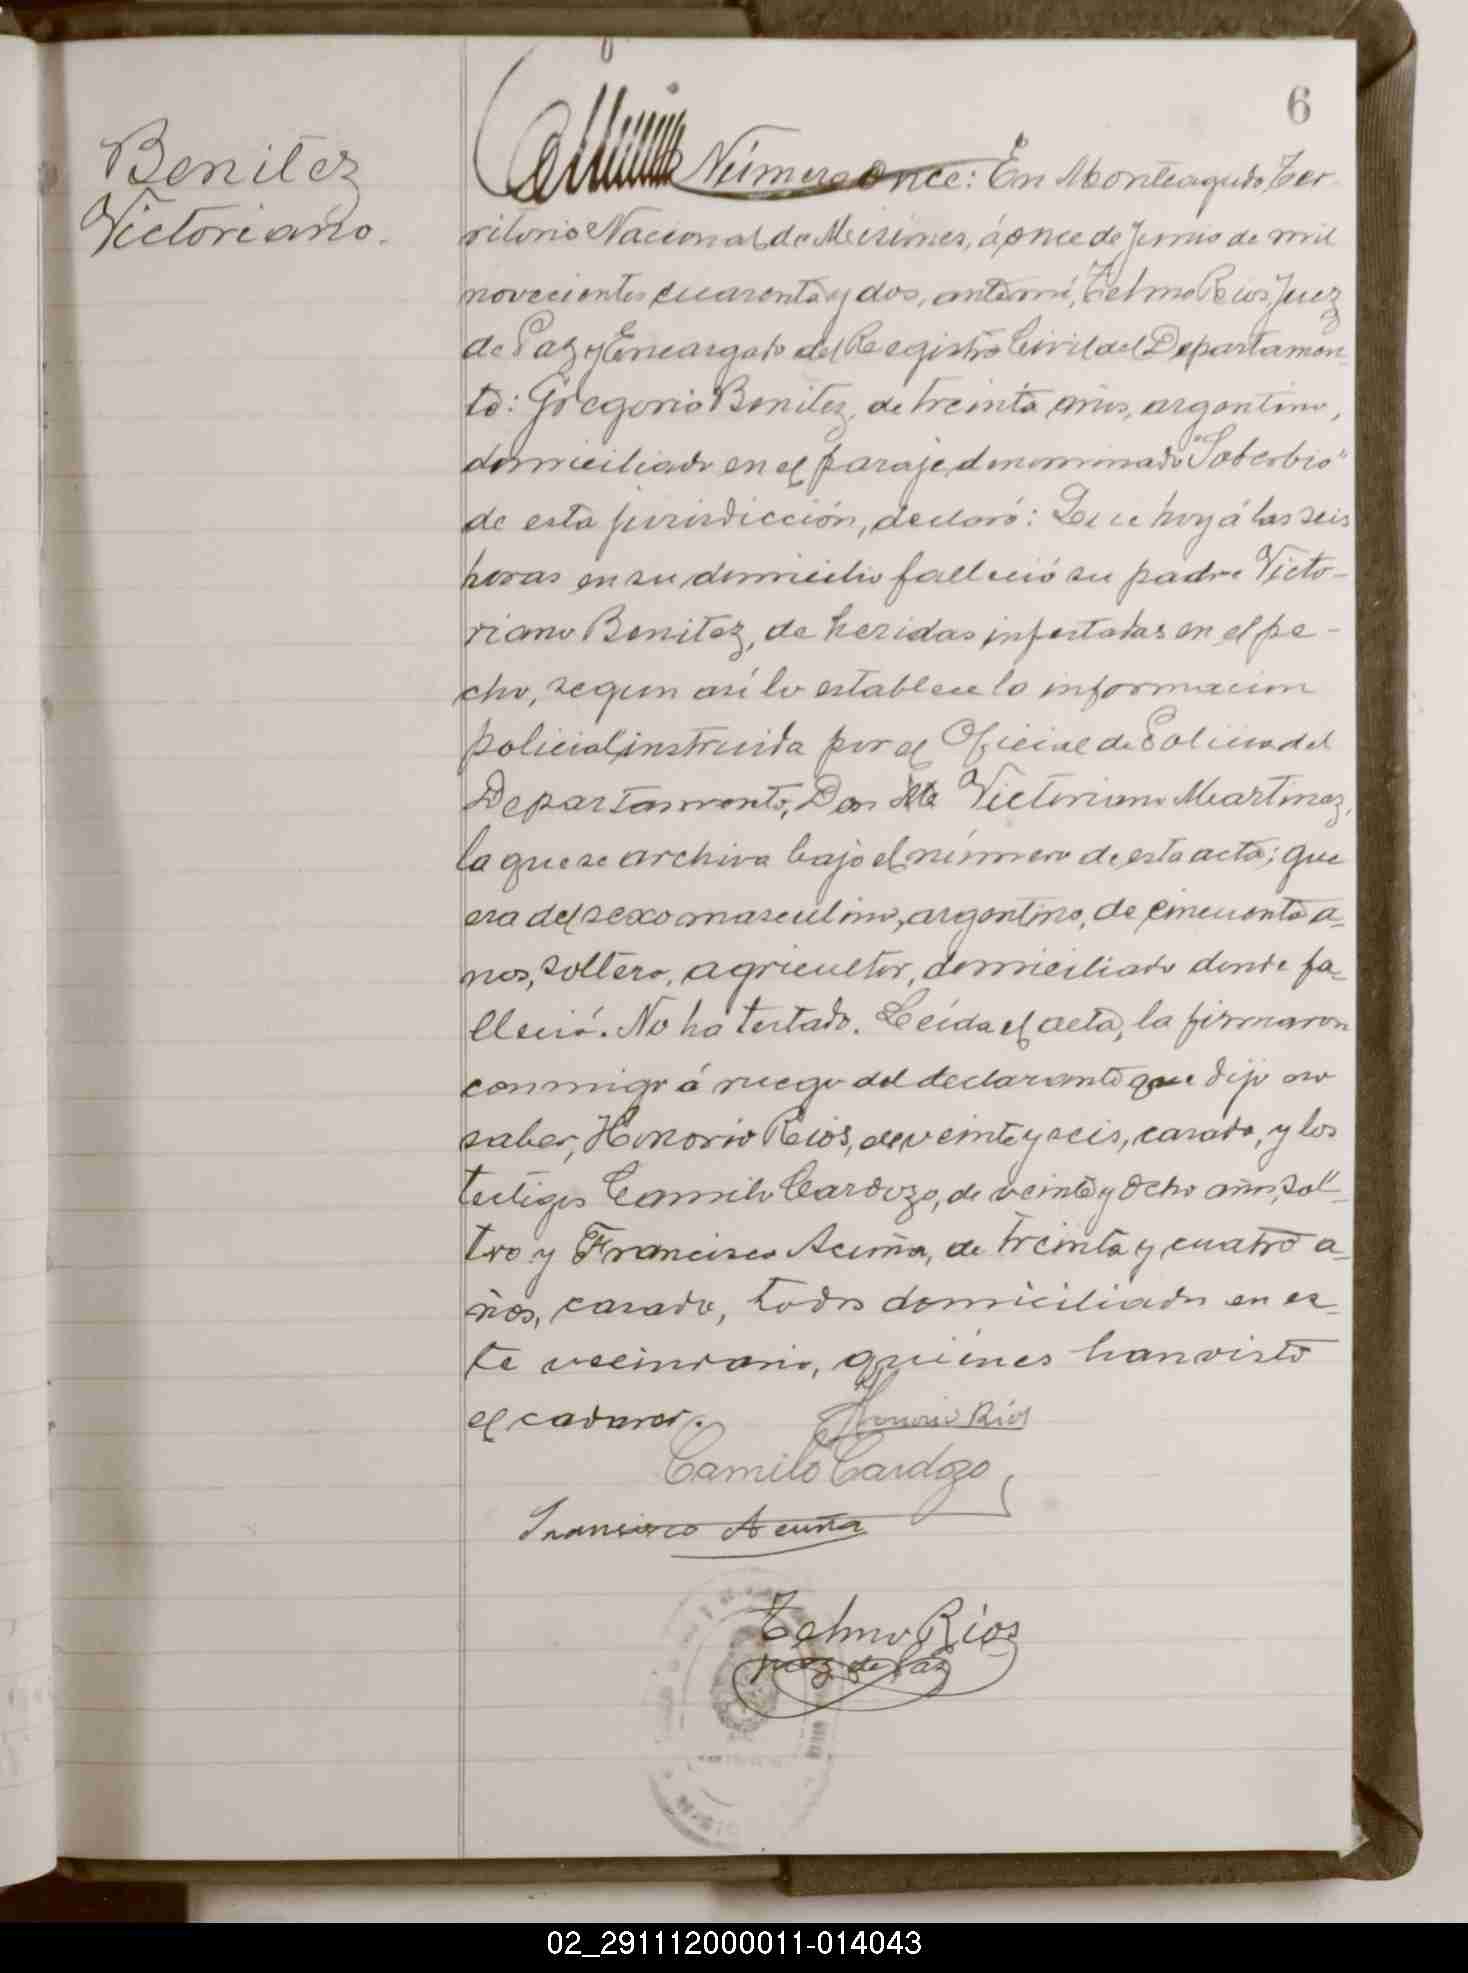 6
Benitez
Victoriano.
Número once: En Monteagudo, Ter-
ritorio Nacional de Misiones, á once de Junio de mil
novecientos cuarenta y dos, ante mí, Telmo Rios, Juez
de Paz y Encargado del Registro Civil del Departamen-
to: Gregorio Benitez, de treinta años, argentino,
domiciliado en el paraje denominado "Soberbio"
de esta jurisdicción, declaró: Que hoy á las seis
horas en su domicilio falleció su padre Victo-
riano Benitez, de heridas infestadas en el pe-
cho, segun así lo establece la informacion
policial instruida por el Oficial de Policia del
Departamento, Don Victoriano Martinez,
la que se archiva bajo el número de esta acta; que
era del sexo masculino, argentino, de cincuenta a-
nos, soltero, agricultor, domiciliado donde fa-
lleció. No ha testado. Leída el acta, la firmaron
conmigo á ruego del declarante que dijo no
saber, Honorio Rios, de veinte y seis, casado, y los
testigos Camilo Cardozo, de veinte y ocho años, sol-
tro y Francisco Acuña, de treinta y cuatro a-
ños, casado, todos domiciliados en es-
te vecindario, quiénes han visto
el cadaver.
Honorio Ríos
Camilo Cardozo
Francisco Acuña
Telmo Ríos
Juez de Paz
02_291112000011-014043